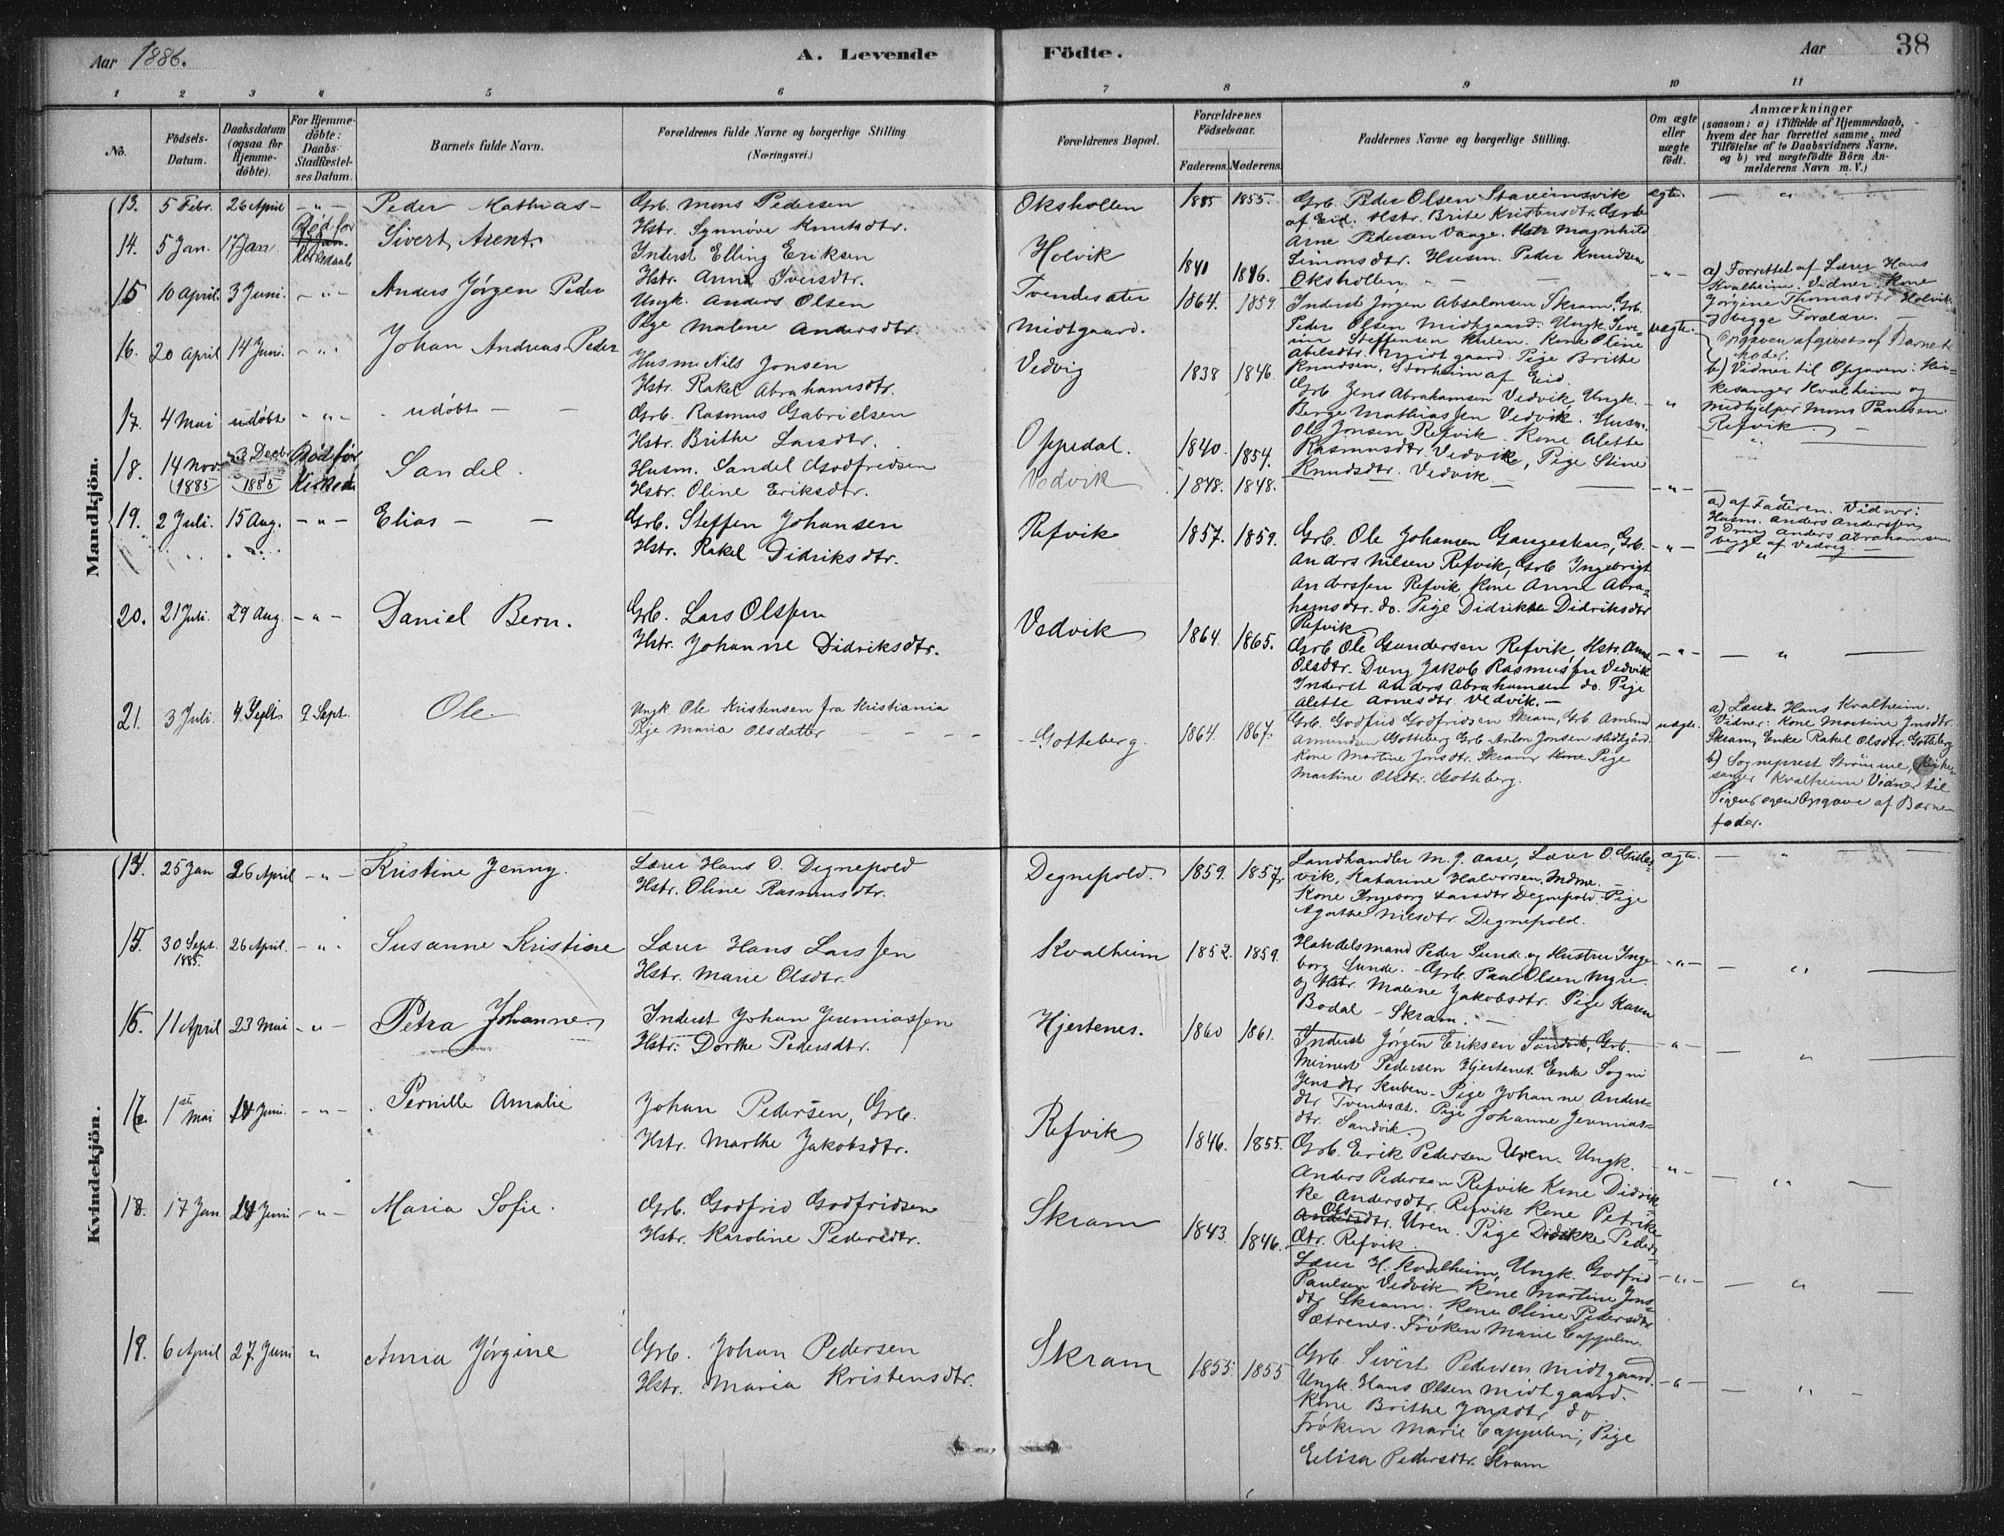 Aar 1886.
A. Levende
Födte.
Aar
38
1 2 3 4 5 6 7 8 9 10 11
No.
Födsels-Datum.
Daabsdatum (ogsaa for Hjemme-döbte).
For Hjemme-döbte: Daabs-Stadfæstel-ses Datum.
Barnets fulde Navn.
Forældrenes fulde Navne og borgerlige Stilling. (Næringsvei.)
Forældrenes Bopæl.
Forældrenes Födselsaar.
Faderens. Moderens.
Faddernes Navne og borgerlige Stilling.
Om ægte eller uægte födt.
Anmærkninger
(saasom: a) i Tilfælde af Hjemmedaab, hvem der har forrettet samme, med Tilföielse af to Daabsvidners Navne, og b) ved uægtefödte Börn An-melderens Navn m. V.)
Mandkjön.
13. 5 Febr. 26 April - " - Peder Mathias -
Grb. Mons Pedersen
Hstr. Synnøve Knutsdtr.
Okshollen 1855.
Grb. Peder Olsen Stareimsvik
af Eid. Hstr. Brite Kristensdtr. Grb
Arne Pedersen Vaage. Hstr Magnhild
Simonsdtr. Husm. Peder Knudsen
Okshollen
ægte.
14. 5 Jan. 17 Jan Død før Kirkedaab Sivert Arent
Inderst Elling Eriksen
Hstr. Anne Iversdtr.
Holvik 1841 1846. - " -
a) Forrettet af Lærer Hans
Kvalheim. Vidner: Kone
Jørgine Thomasdtr. Holvik
og begge Forældre.
15 10 April. 3 Juni. - " - Anders Jørgen Peder
Ungk. Anders Olsen
Pige Malene Andersdtr.
Tvendesæter 1864. 1859
Midtgaard.
Inderst Jørgen Absalonsen Skram, Grb.
Peder Olsen Midtgaard. Ungk. Seve-
rin Steffensen Hulen. Kone Oline
Abelsdtr. Midtgaard. Pige Brithe
Knudsen, Storheim af Eid.
uægte.
Opgaven afgivet af Barnets
Moder.
b) Vidner til Opgaven: Kir-
kesanger Kvalheim og
Medhjelper Mons Paulsen
Refvik.
16. 20 April 14 Juni. - " - Johan Andreas Peder
Husm Nils Jonsen
Hstr. Rakel Abrahamsdtr.
Vedvig 1838 1846.
Grb. Jens Abrahamsen Vedvik Ungk.
Berge Mathiassen Vedvik. Husm.
Ole Jonsen Refvik. Kone Alette
Rasmusdtr. Vedvik, Pige Stine
Knudsdtr. Vedvik
"
17. 4 Mai udøbt - " - udøbt -
Grb. Rasmus Gabrielsen
Hstr. Brithe Larsdtr.
Oppedal. 1840. 1854.
18. 14 Nov. (1885) 3 Decbr 1885 Død før Sandel.
Husm. Sandel Godfridsen
Hstr. Oline Eriksdtr.
Vedvik 1848. 1848. - " -
a) af Faderen. Vidner:
Husm. Anders Anderssen
og Dreng Anders Abrahamsen
begge af Vedvig. -
19. 2 Juli. 15 Aug. - " - Elias -
Grb. Steffen Johansen
Hstr. Rakel Didriksdtr.
Refvik 1857. 1859.
Grb. Ole Johansen Gangeskar, Grb.
Anders Nilsen Refvik, Grb Ingebrigt
Anderssen Refvik, Kone Anne Abra-
hamsdtr. do. Pige Didrikke Didriksdtr
Refvik
- " -
20. 21 Juli. 29 Aug. - " - Daniel Bern.
Grb. Lars Olssen
Hstr. Johanne Didriksdtr.
Vedvik 1864. 1865.
Grb Ole Gundersen Refvik, Hstr. Anne
Olsdtr. Dreng Jakob Rasmussen Vedvik
Inderst Anders Abrahamsen do. Pige
Alette Arnesdtr. Vedvik. -
- " -
21. 3 Juli. 4 Septr 9 Sept. Ole
Ungk Ole Kristensen fra Kristiania
Pige Maria Olsdatter
Gotteberg. 1864. 1867.
Grb. Godfrid Godfridsen Skram, Grb Amund
Amundsen Gotteberg Grb Anton Jonsen Midtgård
Kone Martine Jonsdtr. Skram Pige
Martine Olsdtr. Gotteberg.
uægte.
a) Lærer Hans Kvalheim.
Vidner: Kone Martine Jonsdtr.
Skram, Enke Rakel Olsdtr. Gotteberg
b) Sogneprest Strømme, Kirke-
sanger Kvalheim Vidner til
Pigens egen Opgave af Barne-
fader.
Kvindekjön.
14. 25 Jan 26 April - " - Kristine Jenny.
Lærer Hans O. Degnepold
Hstr. Oline Rasmusdtr.
Degnepold. 1859. 1857.
Landhandler M. J. Aase, Lærer O.
vik, Katarine Halvorsen, Mdme. -
Kone Ingeborg Larsdtr Degnepold. Pige
Agathe Nilsdtr. Degnepold.
ægte.
15. 30 Sept. 1885. 26 April. - " - Susanne Kristine
Lærer Hans Larssen
Hstr. Marie Olsdtr.
Kvalheim 1852. 1859.
Handelsmand Peder Sunde og Hustru Inge-
borg Sunde. - Grb. Paul Olsen Myre.
og Hstr. Malene Jakobsdtr. Pige Karen
Bodal - Skram. -
- " -
16. 11 April 23 Mai - " - Petra Johanne
Inderst Johan Jeremiassen
Hstr. Dorthe Pedersdtr.
Hjertenes. 1860 1861.
Inderst Jørgen Eriksen Sandvik, Grb.
Meinert Pedersen Hjertenes. Enke Sogni
Jensdtr Kuben. Pige Johanne Anders-
dtr Tvendesæt. Pige Johanne Jeremias-
dtr. Sandvik.
- " -
1ste Mai 14 Juni. - " - Pernille Amalie
Johan Pedersen, Grb.
Hstr. Marthe Jakobsdtr.
Refvik 1846. 1855.
Grb. Erik Pedersen Uren. Ungk.
Anders Pedersen Refvik Kone Didrik-
ke Andersdtr. Refvik Kone Petrike
Olsdtr. Uren. Pige Didrikke Peders-
dtr. Refvik
- " -
18. 17 Jan 24 Juni - " - Maria Sofie.
Grb. Godfrid Godfridsen
Hstr. Karoline Pedersdtr.
Skram 1843. 1846.
Lærer H. Kvalheim, Ungk. Godfrid
Paulsen Vedvik Kone Martine Jons-
dtr. Skram. Kone Oline Pedersdtr
Sætrenes. Frøken Marie Cappelen.
- " -
19. 6 April 27 Juni " Anna Jørgine
Grb. Johan Pedersen
Hstr. Maria Kristensdtr.
Skram 1855. 1855
Grb. Sivert Pedersen Midtgaard.
Ungk. Hans Olsen Midtgaard.
Kone Brithe Jonsdtr do
Frøken Marie Cappelen, Pige
Elisa Pedersdtr. Skram
- " -